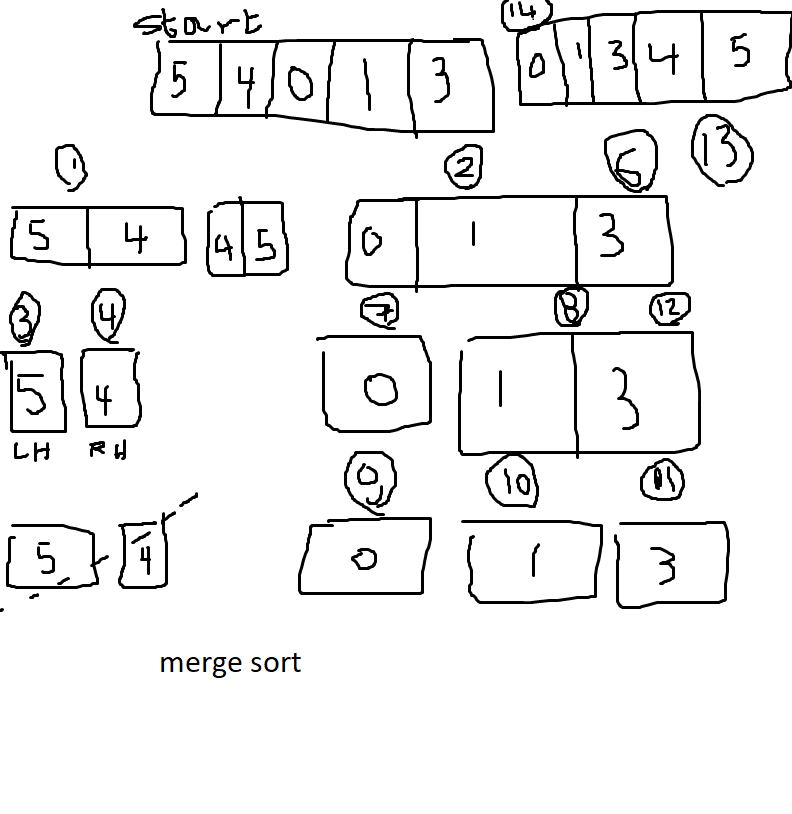 start
14
5 4 0 1 3
0 1 3 4 5
1 2 6 13
5 4
4 5
0 1 3
3 4 7 8 12
5 4
0
1 3
LH RH
9 10 11
5 4
0 1 3
merge sort